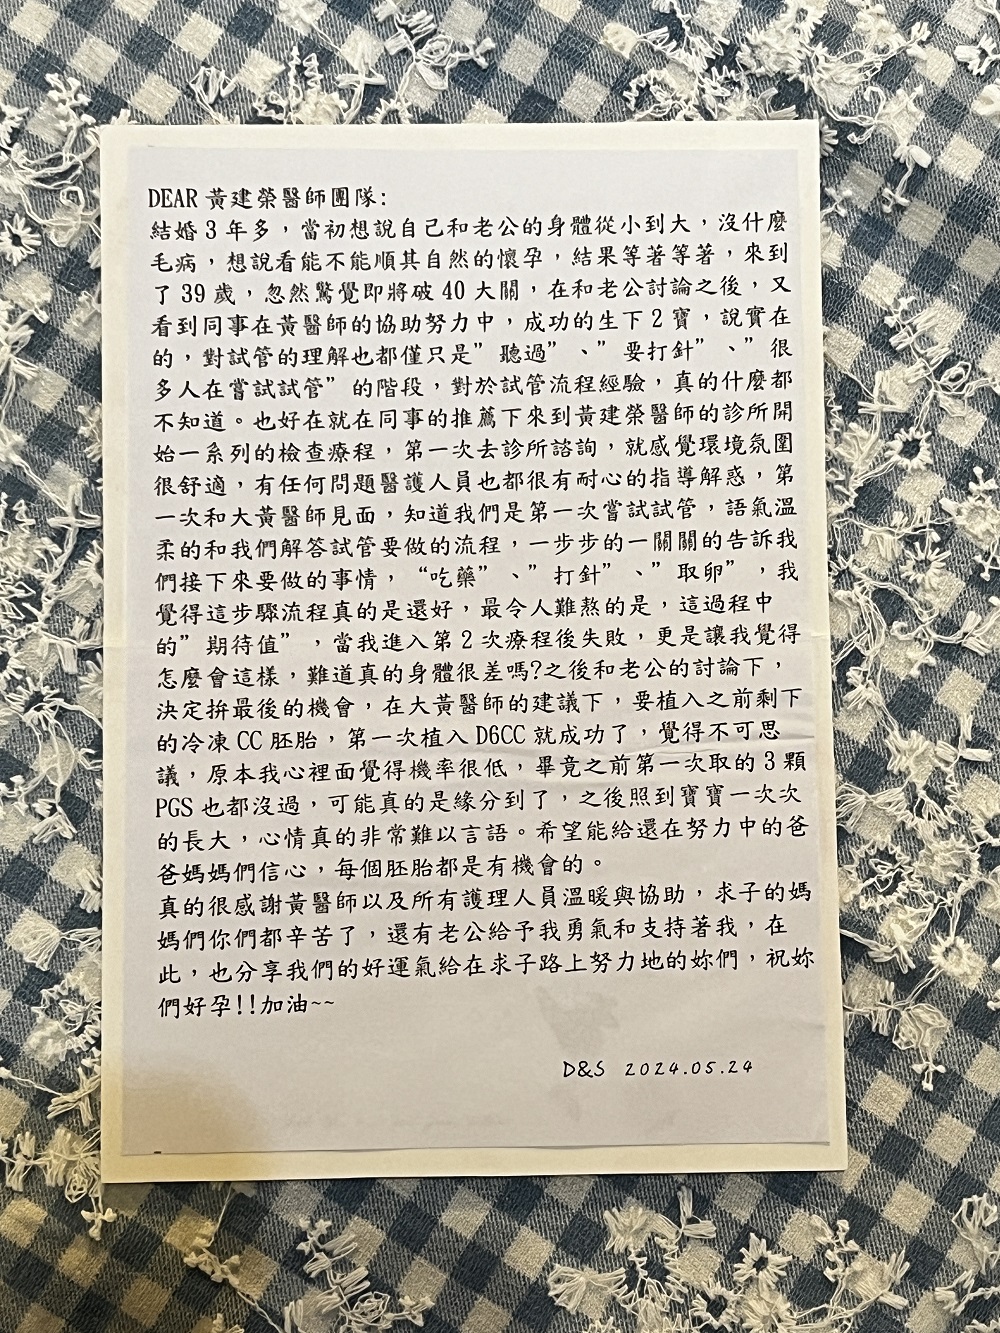 DEAR 黃建榮醫師團隊:
結婚 3 年多，當初想說自己和老公的身體從小到大，沒什麼
毛病，想說看能不能順其自然的懷孕，結果等著等著，來到
了 39 歲，忽然驚覺即將破 40 大關，在和老公討論之後，又
看到同事在黃醫師的協助努力中，成功的生下 2 寶，說實在
的，對試管的理解也都僅只是”聽過”、”要打針”、”很
多人在嘗試試管”的階段，對於試管流程經驗，真的什麼都
不知道。也好在就在同事的推薦下來到黃建榮醫師的診所開
始一系列的檢查療程，第一次去診所諮詢，就感覺環境氛圍
很舒適，有任何問題醫護人員也都很有耐心的指導解惑，第
一次和大黃醫師見面，知道我們是第一次嘗試試管，語氣溫
柔的和我們解答試管要做的流程，一步步的一關關的告訴我
們接下來要做的事情，“吃藥”、”打針”、”取卵”，我
覺得這步驟流程真的是還好，最令人難熬的是，這過程中
的”期待值”，當我進入第 2 次療程後失敗，更是讓我覺得
怎麼會這樣，難道真的身體很差嗎?之後和老公的討論下，
決定拚最後的機會，在大黃醫師的建議下，要植入之前剩下
的冷凍 CC 胚胎，第一次植入 D6CC 就成功了，覺得不可思
議，原本我心裡面覺得機率很低，畢竟之前第一次取的 3 顆
PGS 也都沒過，可能真的是緣分到了，之後照到寶寶一次次
的長大，心情真的非常難以言語。希望能給還在努力中的爸
爸媽媽們信心，每個胚胎都是有機會的。
真的很感謝黃醫師以及所有護理人員溫暖與協助，求子的媽
媽們你們都辛苦了，還有老公給予我勇氣和支持著我，在
此，也分享我們的好運氣給在求子路上努力地的妳們，祝妳
們好孕!!加油~~
D&S 2024.05.24